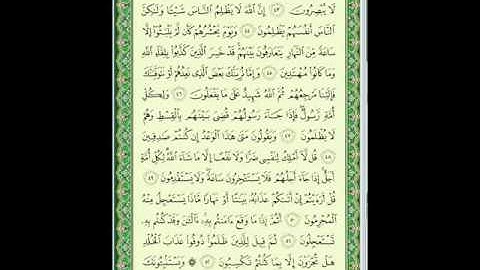 لَا يُبْصِرُونَ ٤٣ إِنَّ اللَّهَ لَا يَظْلِمُ النَّاسَ شَيْئًا وَلَٰكِنَّ
النَّاسَ أَنْفُسَهُمْ يَظْلِمُونَ ٤٤ وَيَوْمَ يَحْشُرُهُمْ كَأَنْ لَمْ يَلْبَثُوا إِلَّا
سَاعَةً مِنَ النَّهَارِ يَتَعَارَفُونَ بَيْنَهُمْ قَدْ خَسِرَ الَّذِينَ كَذَّبُوا بِلِقَاءِ اللَّهِ
وَمَا كَانُوا مُهْتَدِينَ ٤٥ وَإِمَّا نُرِيَنَّكَ بَعْضَ الَّذِي نَعِدُهُمْ أَوْ نَتَوَفَّيَنَّكَ
فَإِلَيْنَا مَرْجِعُهُمْ ثُمَّ اللَّهُ شَهِيدٌ عَلَىٰ مَا يَفْعَلُونَ ٤٦ وَلِكُلِّ
أُمَّةٍ رَسُولٌ فَإِذَا جَاءَ رَسُولُهُمْ قُضِيَ بَيْنَهُمْ بِالْقِسْطِ وَهُمْ
لَا يُظْلَمُونَ ٤٧ وَيَقُولُونَ مَتَىٰ هَٰذَا الْوَعْدُ إِنْ كُنْتُمْ صَادِقِينَ
٤٨ قُلْ لَا أَمْلِكُ لِنَفْسِي ضَرًّا وَلَا نَفْعًا إِلَّا مَا شَاءَ اللَّهُ لِكُلِّ أُمَّةٍ
أَجَلٌ إِذَا جَاءَ أَجَلُهُمْ فَلَا يَسْتَأْخِرُونَ سَاعَةً وَلَا يَسْتَقْدِمُونَ ٤٩
قُلْ أَرَأَيْتُمْ إِنْ أَتَاكُمْ عَذَابُهُ بَيَاتًا أَوْ نَهَارًا مَاذَا يَسْتَعْجِلُ مِنْهُ
الْمُجْرِمُونَ ٥٠ أَثُمَّ إِذَا مَا وَقَعَ آمَنْتُمْ بِهِ آلْآنَ وَقَدْ كُنْتُمْ بِهِ
تَسْتَعْجِلُونَ ٥١ ثُمَّ قِيلَ لِلَّذِينَ ظَلَمُوا ذُوقُوا عَذَابَ الْخُلْدِ
هَلْ تُجْزَوْنَ إِلَّا بِمَا كُنْتُمْ تَكْسِبُونَ ٥٢ ۞ وَيَسْتَنْبِئُونَكَ